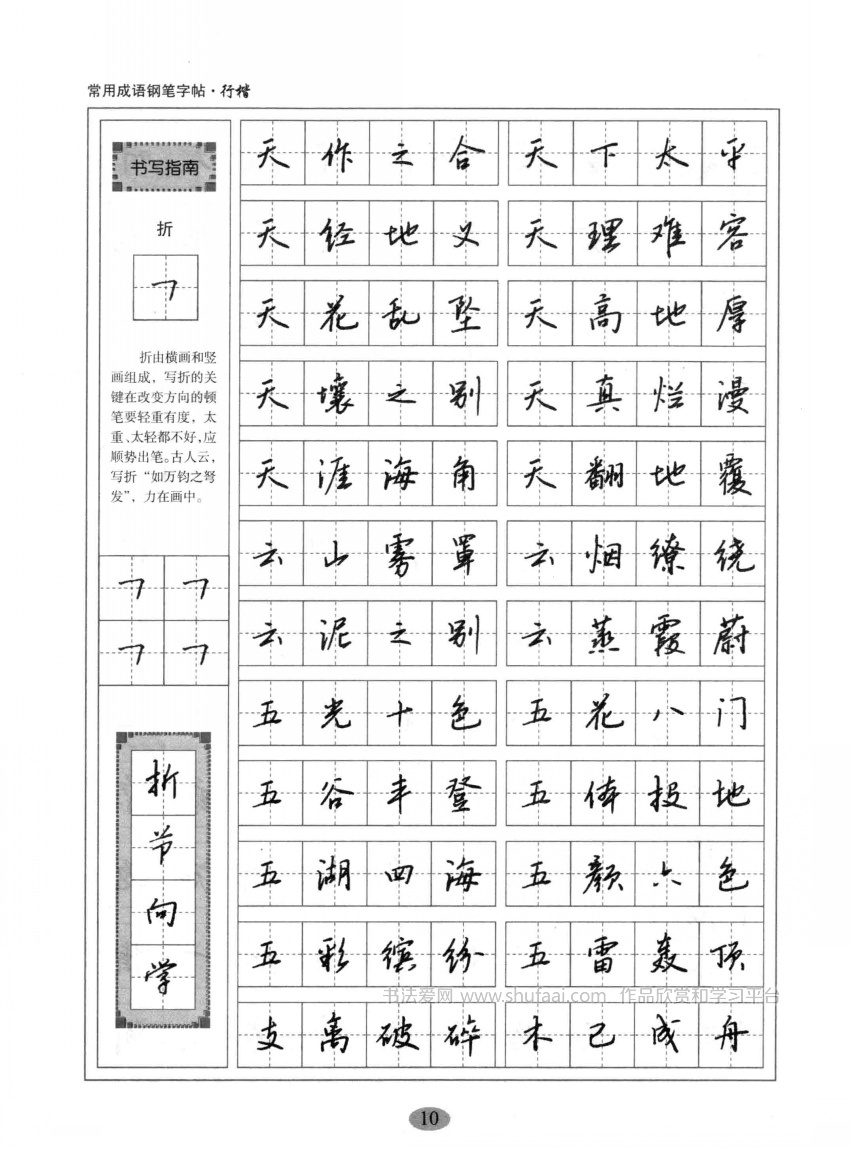 常用成语钢笔字帖·行楷
书写指南
折
折由横画和竖
画组成，写折的关
键在改变方向的顿
笔要轻重有度，太
重、太轻都不好，应
顺势出笔。古人云，
写折“如万钧之弩
发”，力在画中。
折
节
向
学
天作之合 天下太平
天经地义 天理难容
天花乱坠 天高地厚
天壤之别 天真烂漫
天涯海角 天翻地覆
云山雾罩 云烟缭绕
云泥之别 云蒸霞蔚
五光十色 五花八门
五谷丰登 五体投地
五湖四海 五颜六色
五彩缤纷 五雷轰顶
支离破碎 木已成舟
书法爱网 www.shufaai.com 作品欣赏和学习平台
10